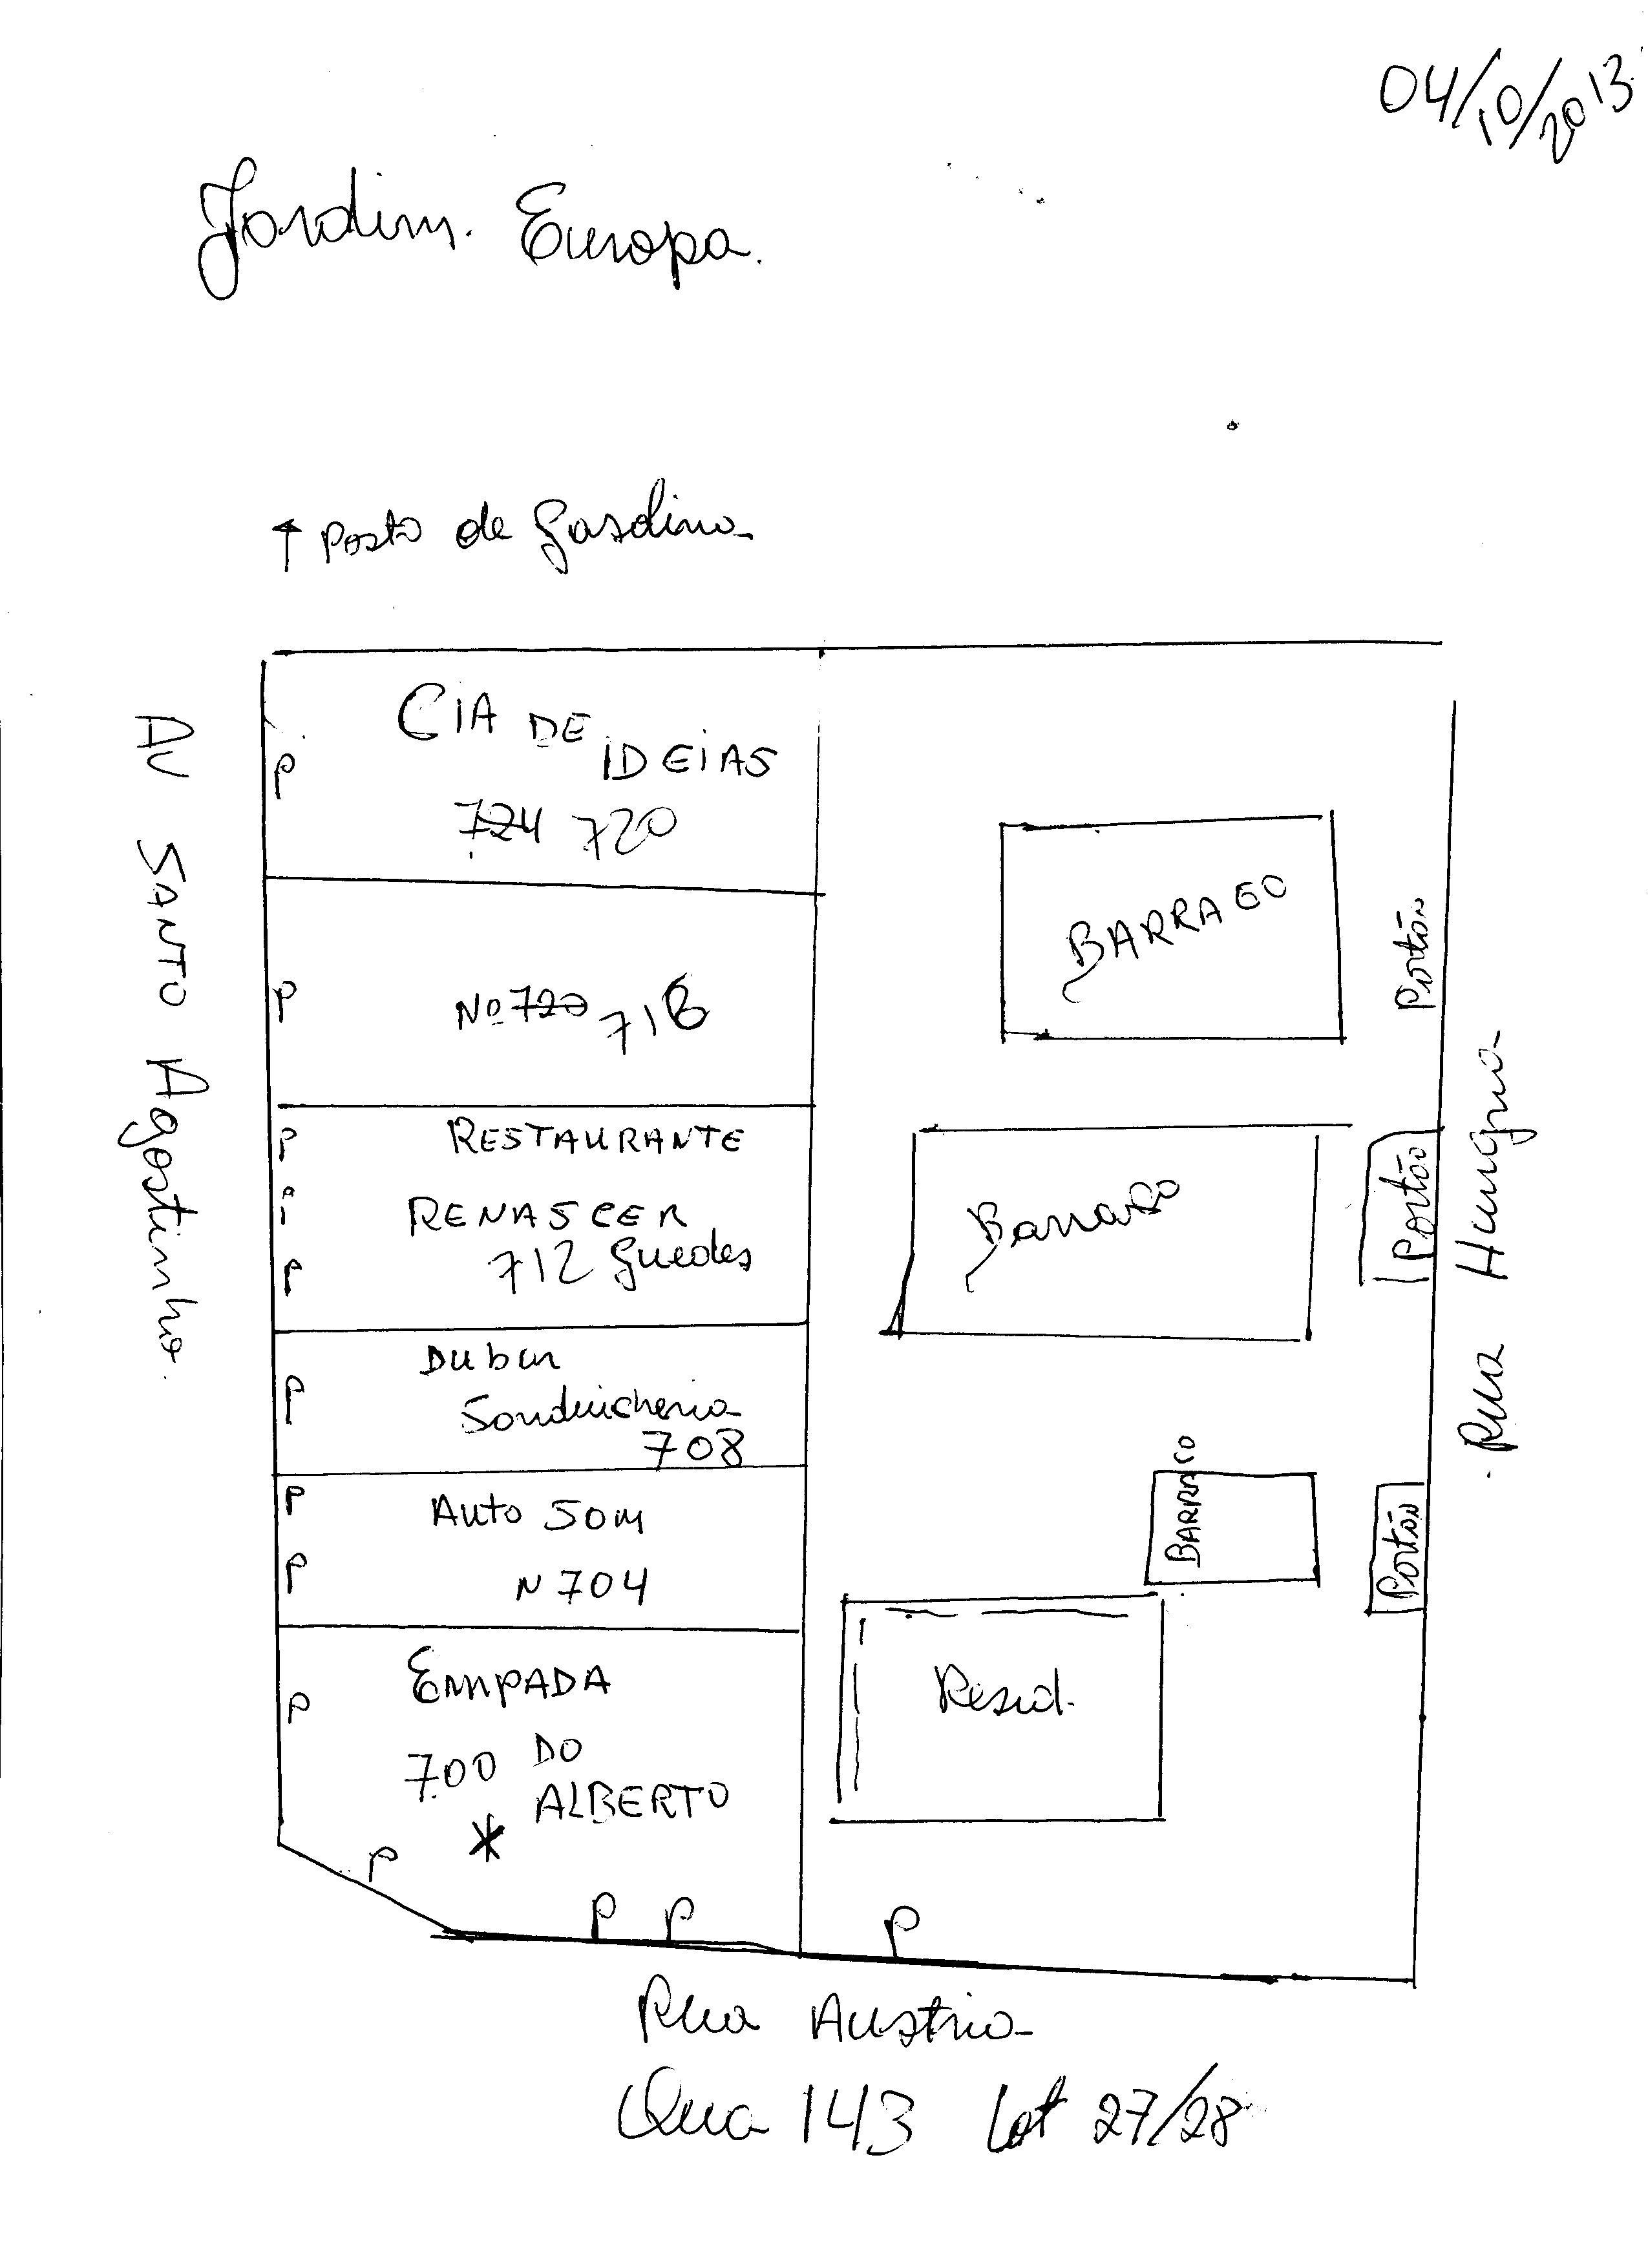 04/10/2013
Jardim. Europa.
↑ Posto de Gasolina
AV SANTO Agostinho.
P
CIA DE
IDEIAS
724 720
P
Nº 720 716
P
RESTAURANTE
RENASCER
712 Guedes
P
Sanduicheria
708
P
Auto Som
P
N 704
P
EMPADA
700 DO
ALBERTO
*
P
P P
P
BARRACO
Portão
Barraco
Portão
Rua Hungria
BARRACO
Portão
Resid.
Rua Austria
Qua 143 Lot 27/28